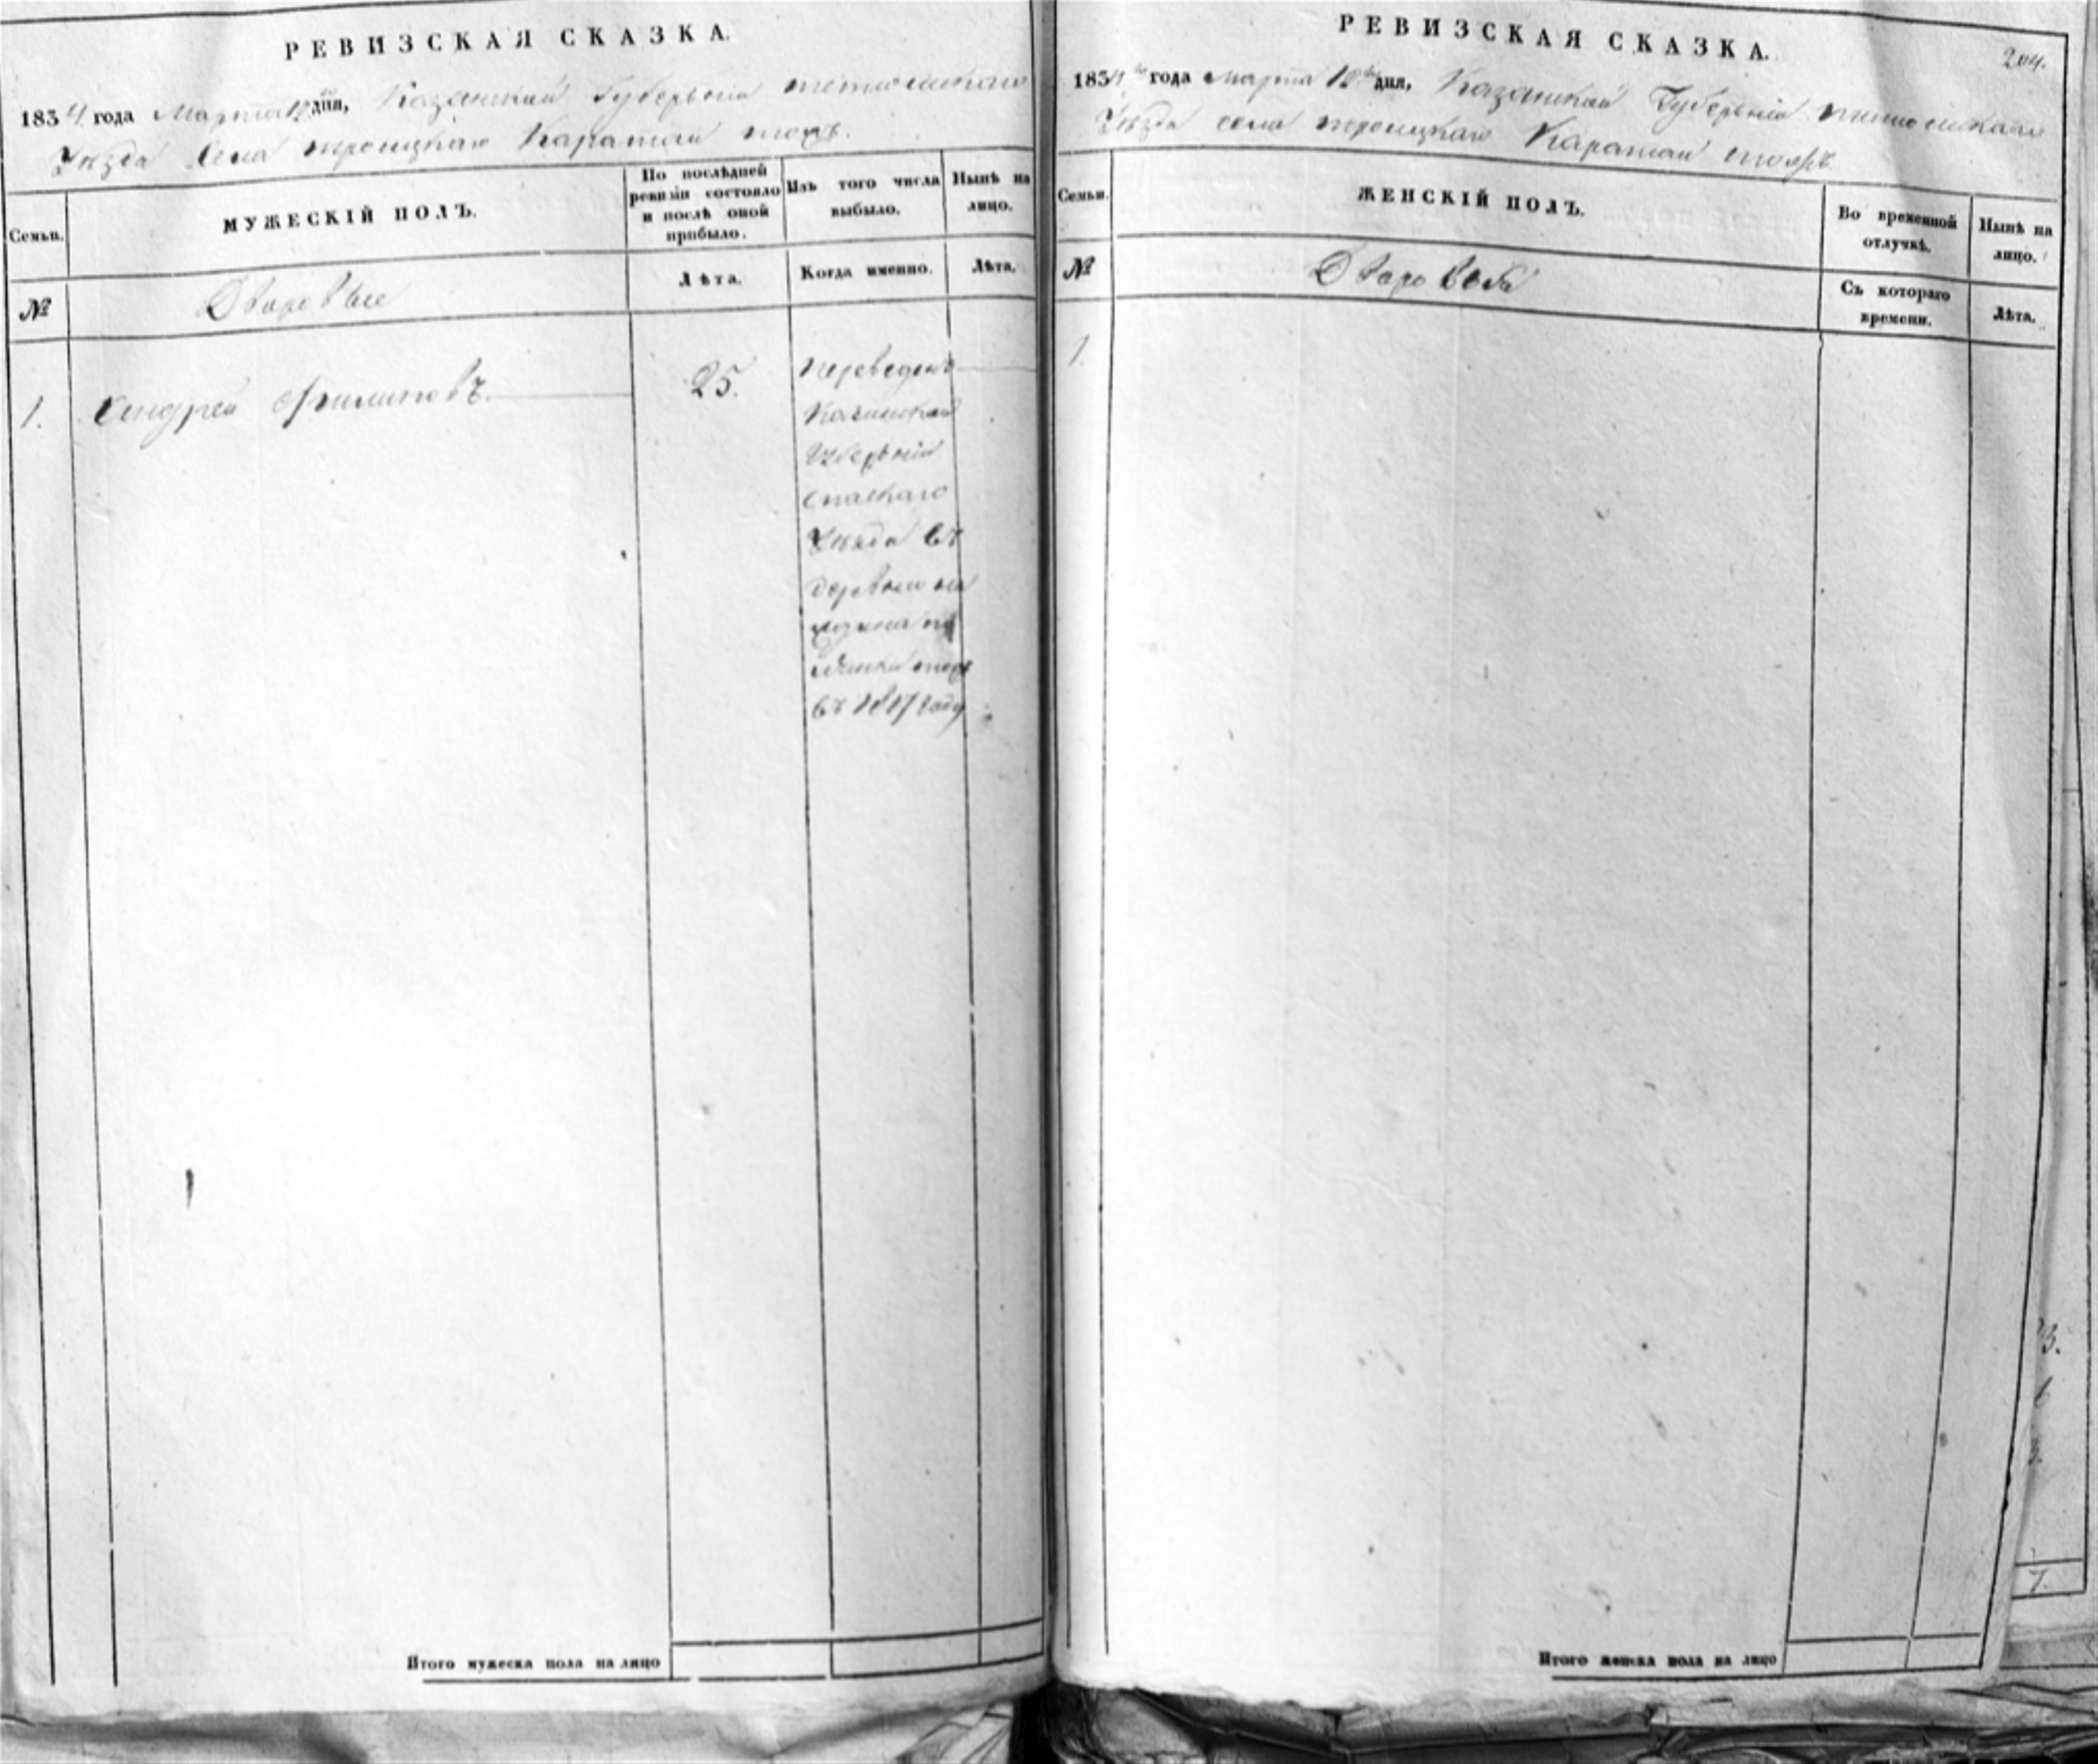 РЕВИЗСКАЯ СКАЗКА.
1834 года Марта 12 дня, Казанской Губерніи тетюшскаго
Уѣзда Села троицкаго Каратаи тожъ.
Семьи.
МУЖЕСКІЙ ПОЛЪ.
По послѣдней ревизіи состояло и послѣ оной прибыло.
Изъ того числа выбыло.
Нынѣ на лицо.
№
Дворовые
Лѣта.
Когда именно.
Лѣта.
1. Андрей Филиповъ
25.
переведенъ
Казанской
Губерніи
Спаскаго
Уѣзда въ
деревню
въ году
Итого мужеска пола на лицо
РЕВИЗСКАЯ СКАЗКА.
204.
1834 года Марта 12 дня, Казанской Губерніи тетюшскаго
Уѣзда села троицкаго Каратаи тожъ.
Семьи.
ЖЕНСКІЙ ПОЛЪ.
Во временной отлучкѣ.
Нынѣ на лицо.
№
Дворовыя
Съ котораго времени.
Лѣта.
1.
Итого женска пола на лицо
7.